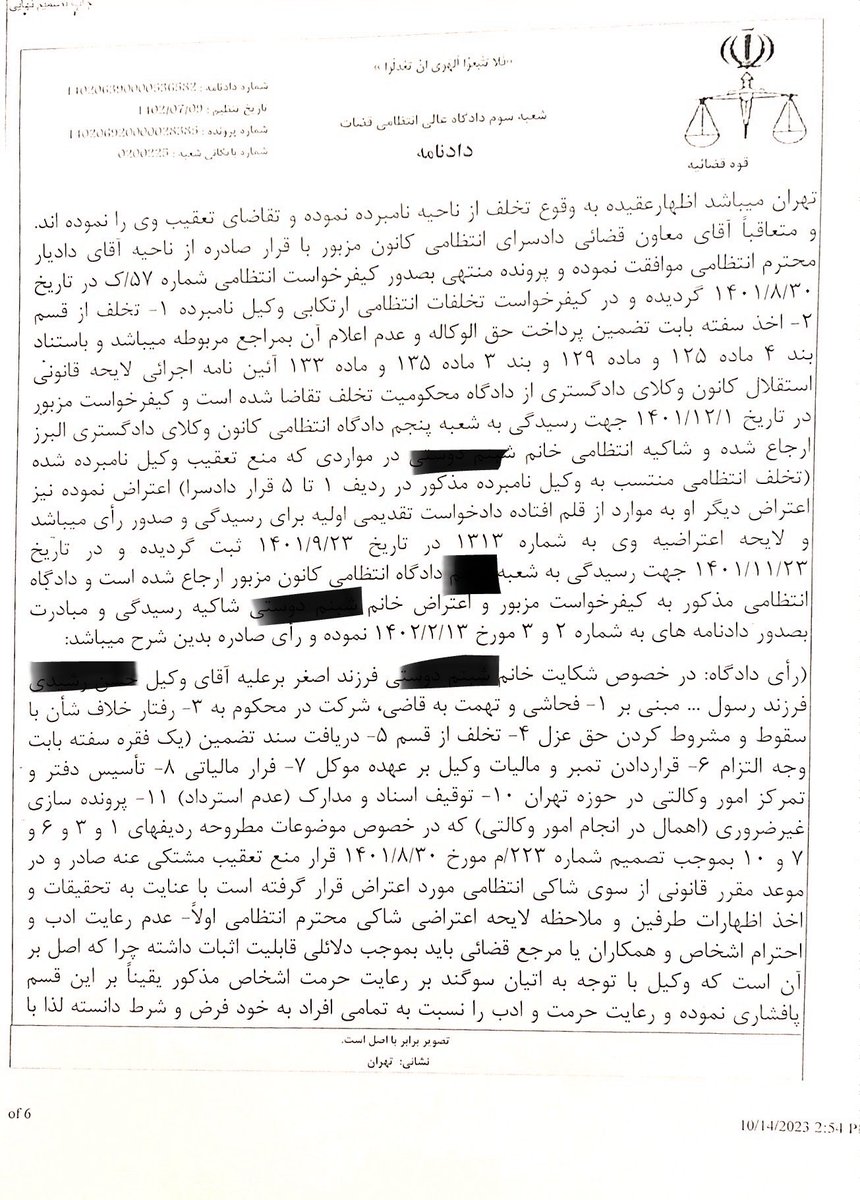 «فلا تتبعوا الهوی ان تعدلوا»
شماره دادنامه :
تاریخ تنظیم : 1402/07/09
شعبه سوم دادگاه عالی انتظامی قضات
شماره پرونده :
شماره بایگانی شعبه : 0200225
دادنامه
قوه قضائیه
تهران میباشد اظهارعقیده به وقوع تخلف از ناحیه نامبرده نموده و تقاضای تعقیب وی را نموده اند.
و متعاقباً آقای معاون قضائی دادسرای انتظامی کانون مزبور با قرار صادره از ناحیه آقای دادیار
محترم انتظامی موافقت نموده و پرونده منتهی بصدور کیفرخواست انتظامی شماره ۵۷/ک در تاریخ
۱۴۰۱/۸/۳۰ گردیده و در کیفرخواست تخلفات انتظامی ارتکابی وکیل نامبرده ۱- تخلف از قسم
۲- اخذ سفته بابت تضمین پرداخت حق الوکاله و عدم اعلام آن بمراجع مربوطه میباشد و باستناد
بند ۴ ماده ۱۲۵ و ماده ۱۲۹ و بند ۳ ماده ۱۳۵ و ماده ۱۳۳ آئین نامه اجرائی لایحه قانونی
استقلال کانون وکلای دادگستری از دادگاه محکومیت تخلف تقاضا شده است و کیفرخواست مزبور
در تاریخ ۱۴۰۱/۱۲/۱ جهت رسیدگی به شعبه پنجم دادگاه انتظامی کانون وکلای دادگستری البرز
ارجاع شده و شاکیه انتظامی خانم در مواردی که منع تعقیب وکیل نامبرده شده
(تخلف انتظامی منتسب به وکیل نامبرده مذکور در ردیف ۱ تا ۵ قرار دادسرا) اعتراض نموده نیز
اعتراض دیگر او به موارد از قلم افتاده دادخواست تقدیمی اولیه برای رسیدگی و صدور رأی میباشد
و لایحه اعتراضیه وی به شماره ۱۳۱۳ در تاریخ ۱۴۰۱/۹/۲۳ ثبت گردیده و در تاریخ
۱۴۰۱/۱۱/۲۳ جهت رسیدگی به شعبه دادگاه انتظامی کانون مزبور ارجاع شده است و دادگاه
انتظامی مذکور به کیفرخواست مزبور و اعتراض خانم شاکیه رسیدگی و مبادرت
بصدور دادنامه های به شماره ۲ و ۳ مورخ ۱۴۰۲/۲/۱۳ نموده و رأی صادره بدین شرح میباشد:
(رأی دادگاه: در خصوص شکایت خانم فرزند اصغر برعلیه آقای وکیل
فرزند رسول ... مبنی بر ۱- فحاشی و تهمت به قاضی، شرکت در محکوم به ۳- رفتار خلاف شأن با
سقوط و مشروط کردن حق عزل ۴- تخلف از قسم ۵- دریافت سند تضمین (یک فقره سفته بابت
وجه التزام ۶- قراردادن تمبر و مالیات وکیل بر عهده موکل ۷- فرار مالیاتی ۸- تأسیس دفتر و
تمرکز امور وکالتی در حوزه تهران ۱۰- توقیف اسناد و مدارک (عدم استرداد) ۱۱- پرونده سازی
غیرضروری (اهمال در انجام امور وکالتی) که در خصوص موضوعات مطروحه ردیفهای ۱ و ۳ و ۶ و
۷ و ۱۰ بموجب تصمیم شماره ۲۲۳/م مورخ ۱۴۰۱/۸/۳۰ قرار منع تعقیب مشتکی عنه صادر و در
موعد مقرر قانونی از سوی شاکی انتظامی مورد اعتراض قرار گرفته است با عنایت به تحقیقات و
اخذ اظهارات طرفین و ملاحظه لایحه اعتراضی شاکی محترم انتظامی اولاً- عدم رعایت ادب و
احترام اشخاص و همکاران یا مرجع قضائی باید بموجب دلائلی قابلیت اثبات داشته چرا که اصل بر
آن است که وکیل با توجه به اتیان سوگند بر رعایت حرمت اشخاص مذکور یقیناً بر این قسم
پافشاری نموده و رعایت حرمت و ادب را نسبت به تمامی افراد به خود فرض و شرط دانسته لذا با
تصویر برابر با اصل است.
نشانی: تهران
of 6
10/14/2023 2:54 P